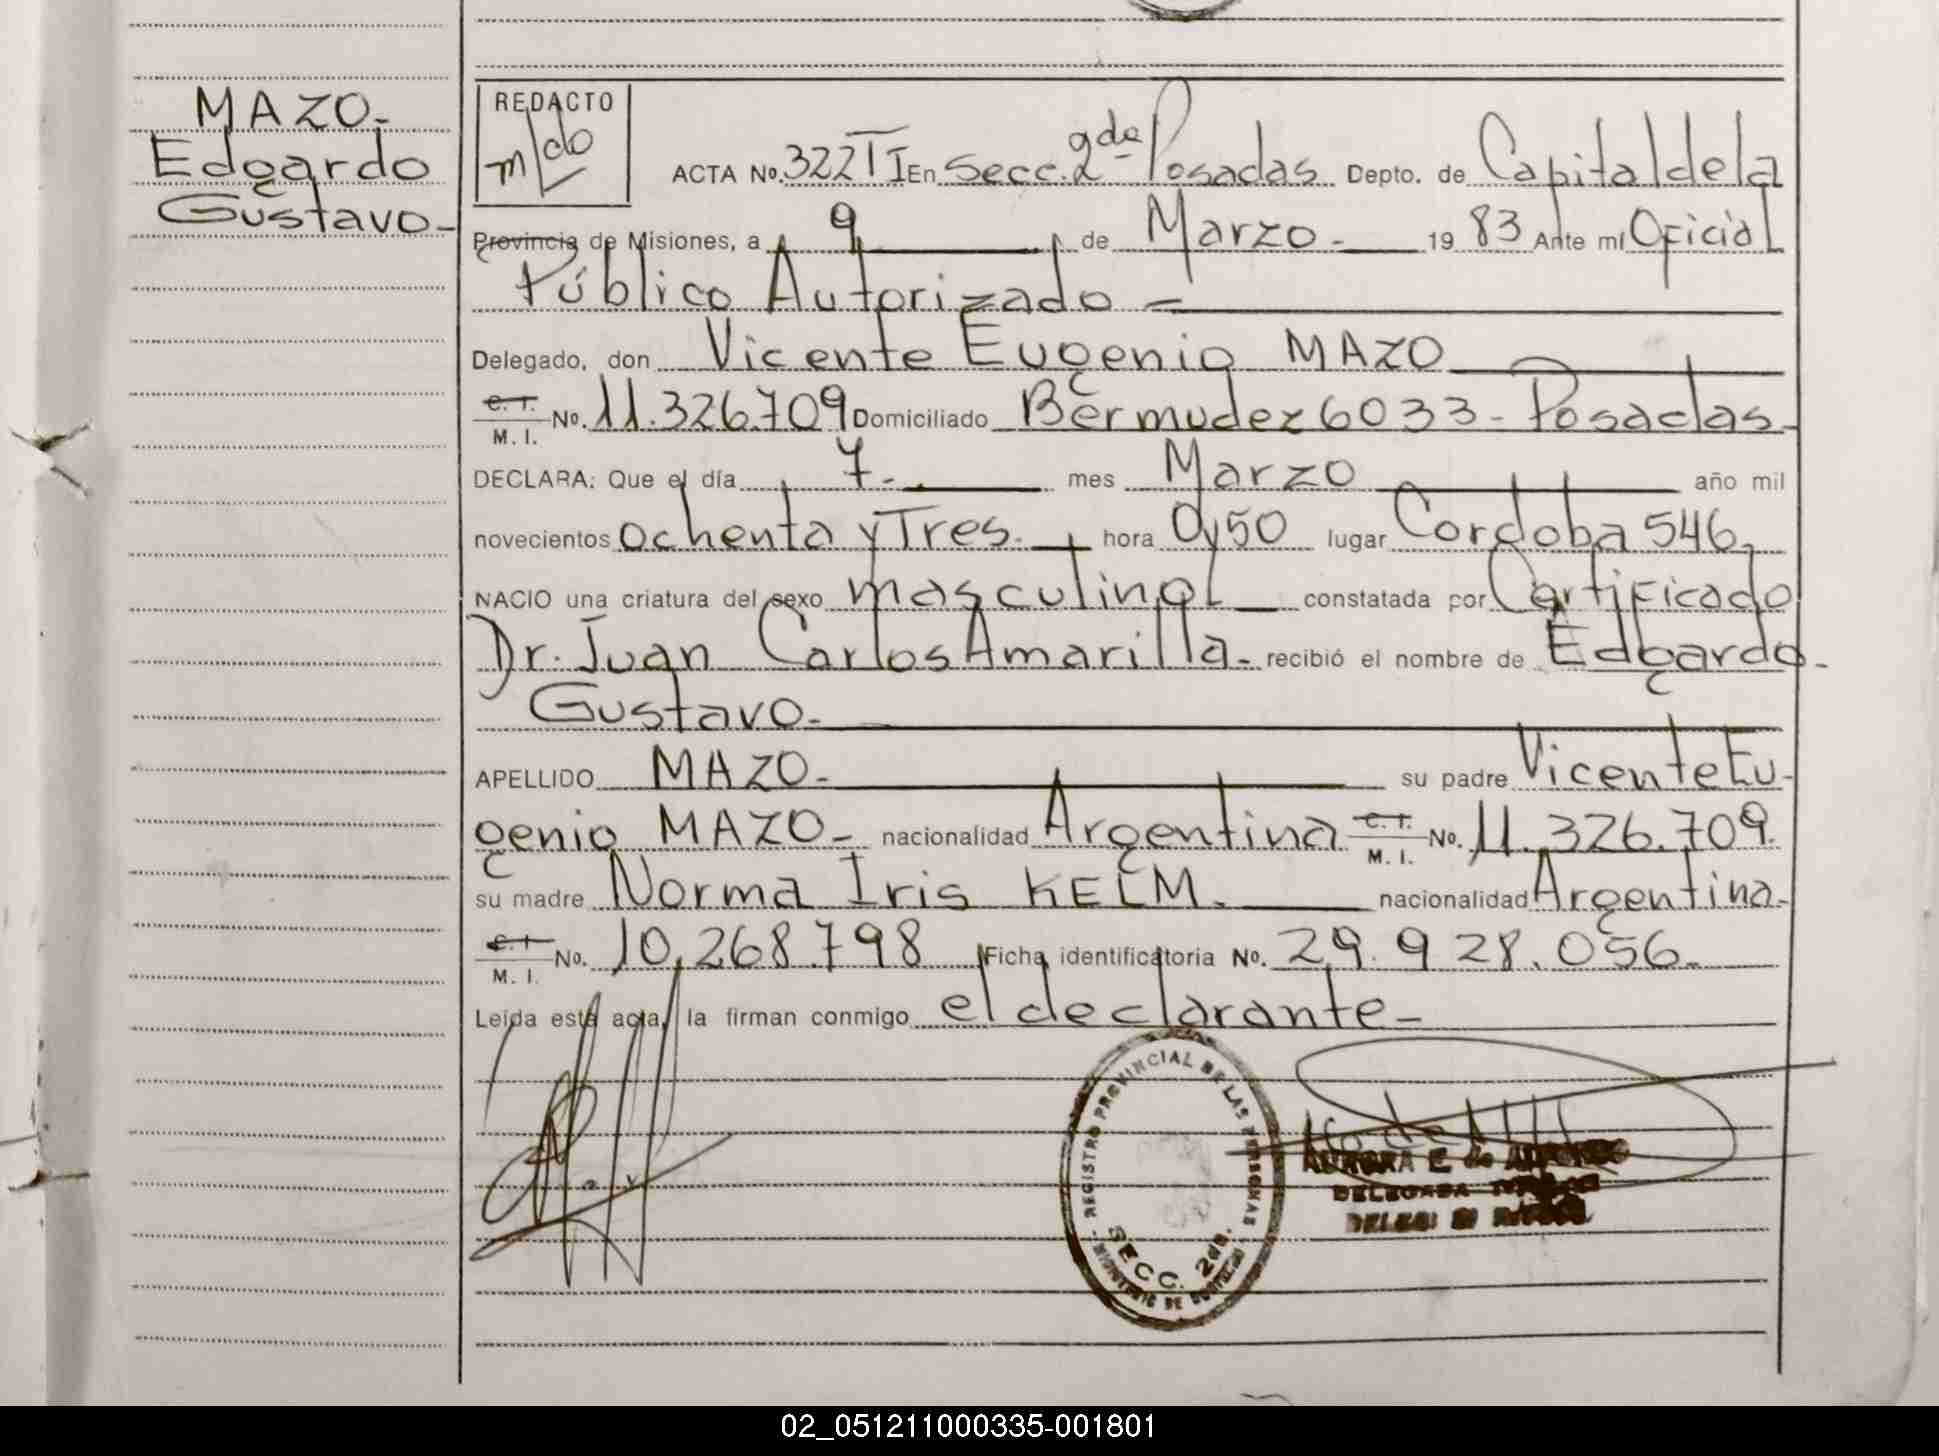 MAZO-
Edgardo
Gustavo-
REDACTO
ACTA No. 322 TI En Secc. 2da Posadas Depto. de Capital de la
Provincia de Misiones, a 9 de Marzo - 19 83 Ante mí Oficial
Público Autorizado -
Delegado, don Vicente Eugenio MAZO
C. I. / M. I. No. 11.326.709 Domiciliado Bermudez 6033 - Posadas
DECLARA: Que el día 7- mes Marzo año mil
novecientos ochenta y Tres. hora 0,50 lugar Cordoba 546,
NACIO una criatura del sexo masculino constatada por Certificado
Dr. Juan Carlos Amarilla - recibió el nombre de Edgardo -
Gustavo -
APELLIDO MAZO - su padre Vicente Eu-
genio MAZO - nacionalidad Argentina C. I. / M. I. No. 11.326.709.
su madre Norma Iris KELM. nacionalidad Argentina -
C. I. / M. I. No. 10.268.798 Ficha identificatoria No. 29.928.056-
Leída esta acta, la firman conmigo el declarante -
REGISTRO PROVINCIAL DE LAS PERSONAS
SECC. 2da.
MINISTERIO DE GOBIERNO
AURORA E. de
DELEGADA
02_051211000335-001801